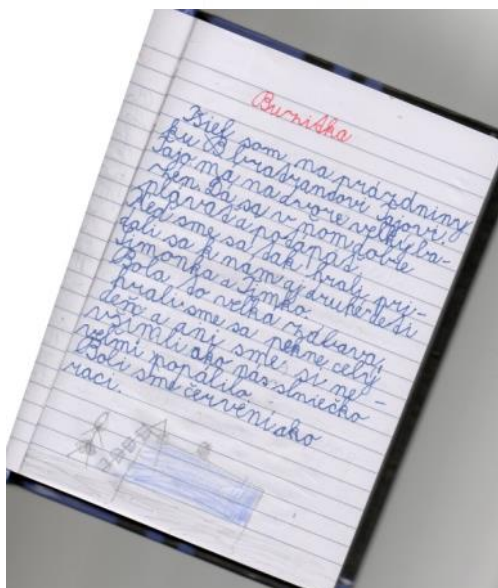 Bežiel som na prázdniny
ku B bratrandovi Tajovi.
Tajo má na dvore velký ba-
zen. Dá sa v nom dobre
plávať a potápať.
Keď sme sa tak hrali pri-
dali sa k nám aj druhé deti
Simonka a Timko.
Bola to velká zábava,
hrali sme sa pekne celý
deň a ani sme si ne-
všimli ako nás slniečko
velmi popálilo.
Boli sme červení ako
raci.